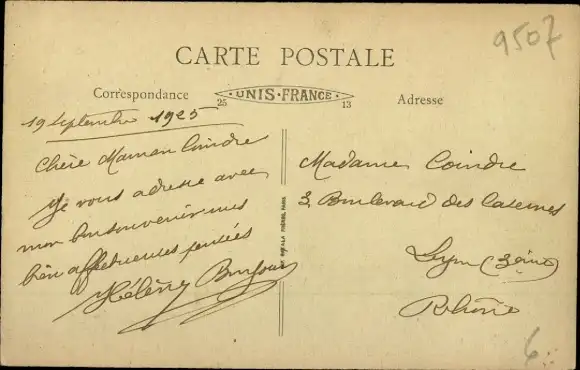 9507
CARTE POSTALE
Correspondance
25 UNIS-FRANCE 13
Adresse
19 Septembre 1925
Chère Maman Coindre
Je vous adresse avec
mon bon souvenir mes
bien affectueuses pensées
Hélène
Madame Coindre
3 Boulevard des Casernes
Lyon (3ème)
Rhône
6